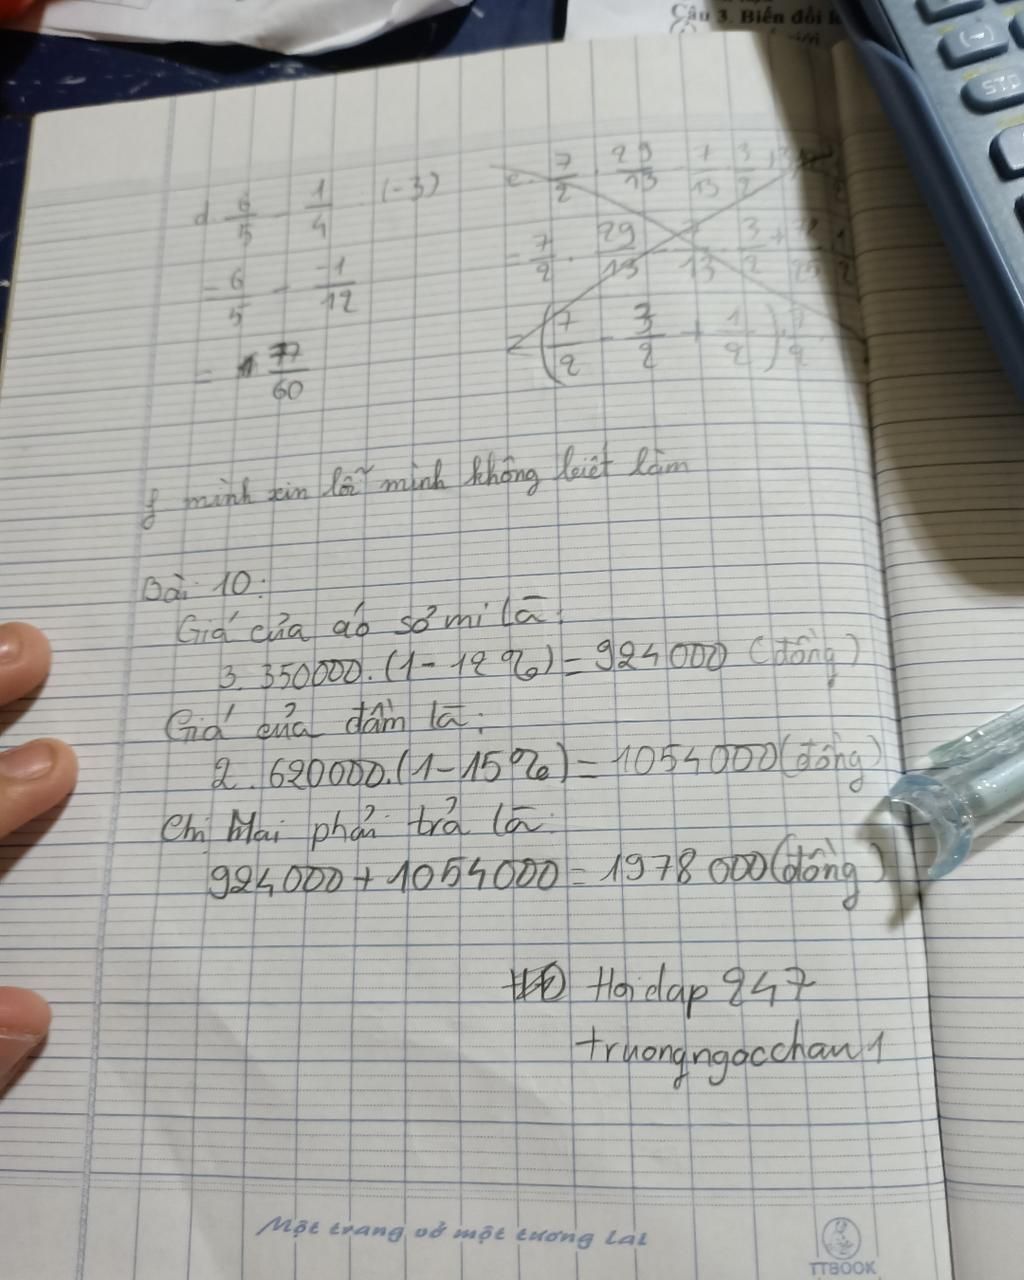 Câu 3. Biến đổi
STO
d. 6/5 - 1/4 . (-3)
= 6/5 - -1/12
= 77/60
e. 7/2 . 29/13 - 7/13 . 3/2
= 7/2 . 29/13 - 7/13 . 3/2 + 1/2
= (7/2 - 3/2 + 1/2)
f mình xin lỗi mình không biết làm
Bài 10:
Giá của áo sơ mi là:
3. 350000.(1-12%)=924000 (đồng)
Giá của đầm là:
2. 620000.(1-15%)=1054000(đồng)
Chị Mai phải trả là:
924000+1054000=1978000(đồng)
Hoidap 247
truongngocchau1
Một trang vở một tương lai
TTBOOK